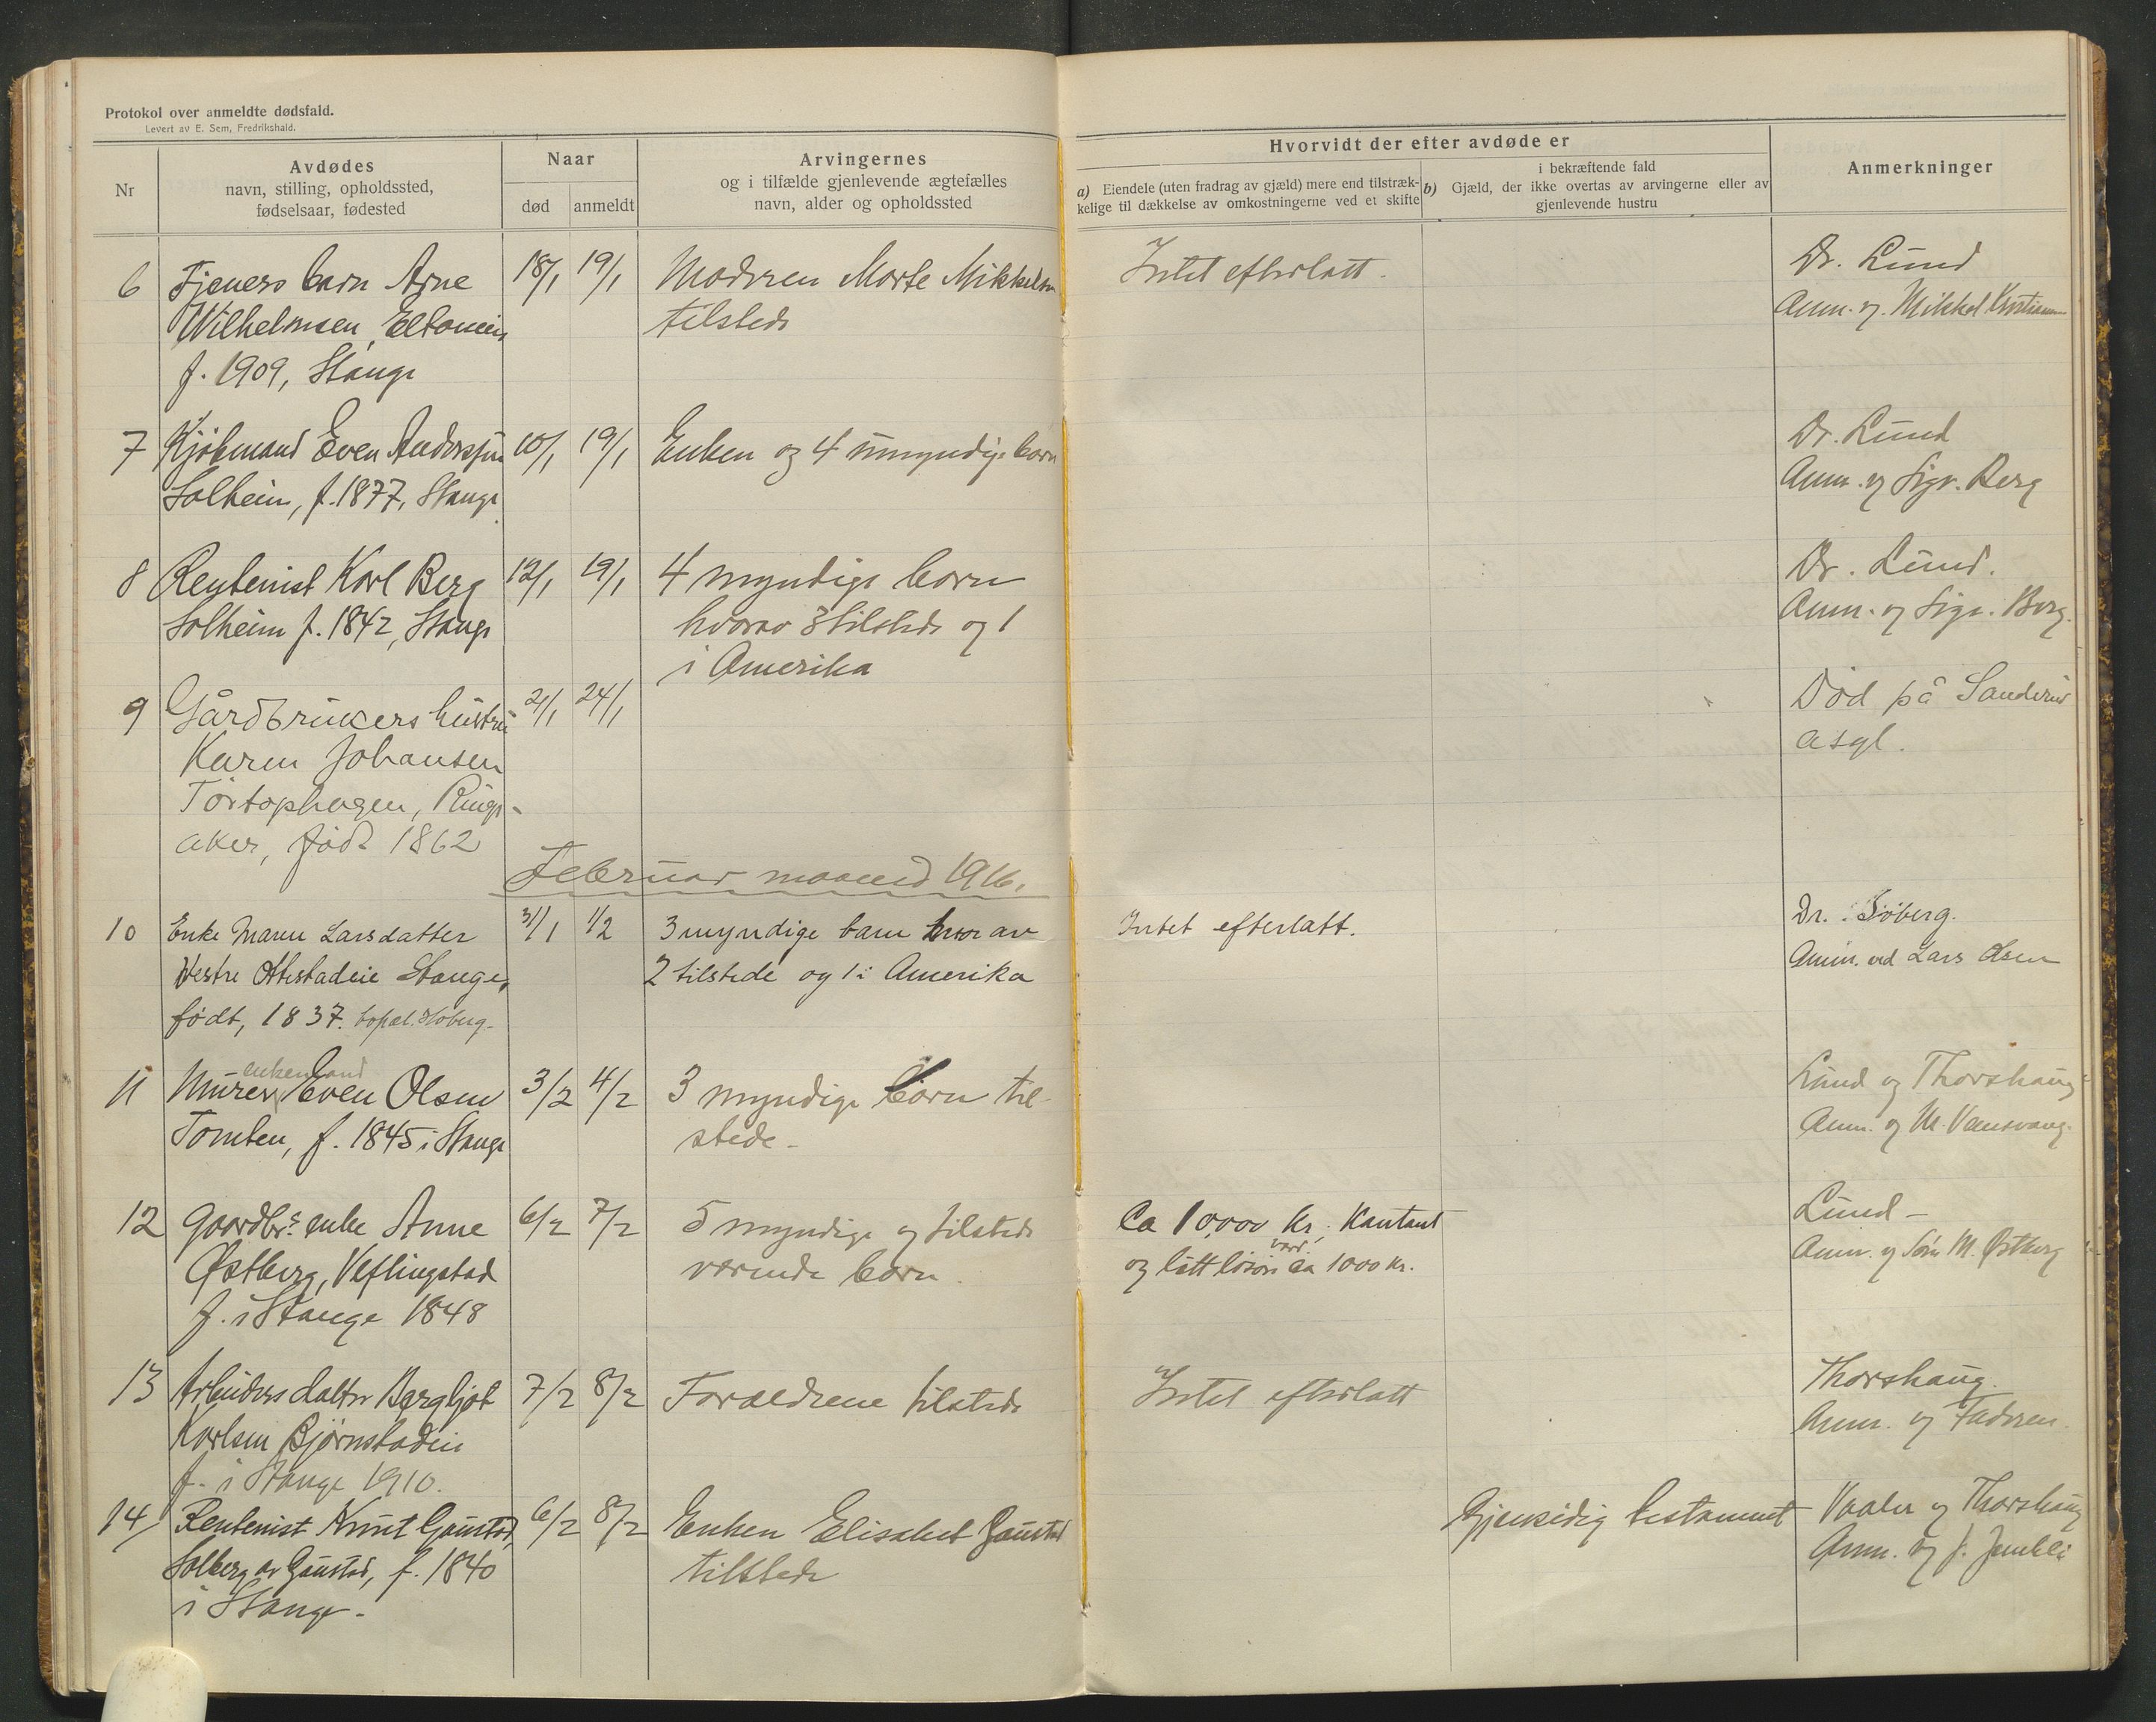 Protokol over anmeldte dødsfald.
Levert av E. Sem, Fredrikshald.
Nr
Avdødes
navn, stilling, opholdssted,
fødselsaar, fødested
Naar
død
anmeldt
Arvingernes
og i tilfælde gjenlevende ægtefælles
navn, alder og opholdssted
Hvorvidt der efter avdøde er
a) Eiendele (uten fradrag av gjæld) mere end tilstræk-
kelige til dækkelse av omkostningerne ved et skifte
i bekræftende fald
b) Gjæld, der ikke overtas av arvingerne eller av
gjenlevende hustru
Anmerkninger
6 Tjeners barn Arne 18/1 19/1 Moderen Marte Mikkelsen Intet efterlatt. Dr. Lund
Wilhelmsen, tilstede Anm. Mikkel Kristiansen
f. 1909, Stange
7 Kjøbmand Even Anderssen 10/1 19/1 Enken og 4 umyndige barn Dr. Lund
Solheim, f. 1877, Stange Anm. Sigv. Berg
8 Rentenist Karl Berg 12/1 19/1 4 myndige barn Dr. Lund.
Solheim f. 1842, Stange hvorav 3 tilstede og 1 Anm. Sigv. Berg.
i Amerika
9 Gårdbrukers hustru 21/1 24/1 Død på Sanderud
Karen Johansen asyl.
Rings-
aker, født 1862
Februar maaned 1916.
10 Enke Maren Larsdatter 31/1 1/2 3 myndige barn hvorav Intet efterlatt. Dr.
Vestre Ottestadeie Stange, 2 tilstede og 1 i Amerika Anm. ved Lars Olsen
født, 1837.
enkemand
11 Murer Even Olsen 3/2 4/2 3 myndige barn til- Lund og Thorshaug
Tomten, f. 1845 i Stange stede - Anm. M.
12 Gaardbr.s enke Anne 6/2 7/2 5 myndige og tilstede Ca 10,000 kr. kontant Lund -
Østberg, Veflingstad værende barn. og litt løsøre værd. ca 1000 kr. Anm. M. Østberg
f. i Stange 1848
13 Arbeiders datter Bergljot 7/2 8/2 Forældrene tilstede Intet efterlatt Thorshaug.
Karlsen Bjørnstadeie Anm. Faderen.
f. i Stange 1910.
14 Rentenist Knut Gaustad, 6/2 8/2 Enken Elisabet Gaustad Gjensidig testament Vaaler og Thorshaug
Solberg av Gaustad, f. 1840 tilstede Anm. J.
i Stange -